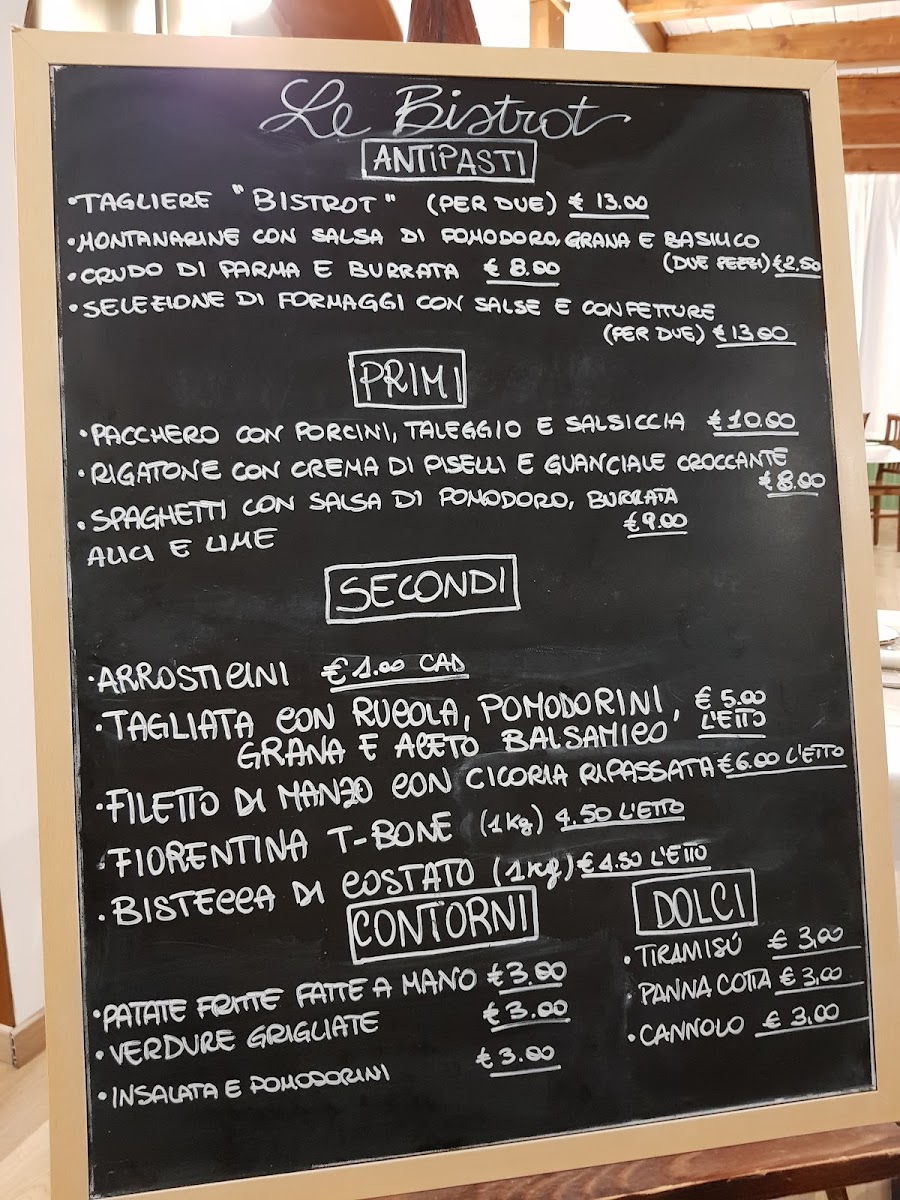 Le Bistrot
ANTIPASTI
•TAGLIERE "BISTROT" (PER DUE) € 13.00
•MONTANARINE CON SALSA DI POMODORO, GRANA E BASILICO
(DUE PEZZI) €2.50
•CRUDO DI PARMA E BURRATA € 8.00
•SELEZIONE DI FORMAGGI CON SALSE E CONFETTURE
(PER DUE) €13.00
PRIMI
•PACCHERO CON PORCINI, TALEGGIO E SALSICCIA €10.00
•RIGATONE CON CREMA DI PISELLI E GUANCIALE CROCCANTE
€8.00
•SPAGHETTI CON SALSA DI POMODORO, BURRATA
ALICI E LIME €9.00
SECONDI
•ARROSTICINI €1.00 CAD
•TAGLIATA CON RUCOLA, POMODORINI, € 5.00
GRANA E ACETO BALSAMICO L'ETTO
•FILETTO DI MANZO CON CICORIA RIPASSATA €6.00 L'ETTO
•FIORENTINA T-BONE (1Kg) 4.50 L'ETTO
•BISTECCA DI COSTATO (1Kg) €4.50 L'ETTO
CONTORNI
•PATATE FRITTE FATTE A MANO €3.00
•VERDURE GRIGLIATE €3.00
•INSALATA E POMODORINI €3.00
DOLCI
•TIRAMISÚ € 3,00
•PANNA COTTA € 3,00
•CANNOLO € 3,00